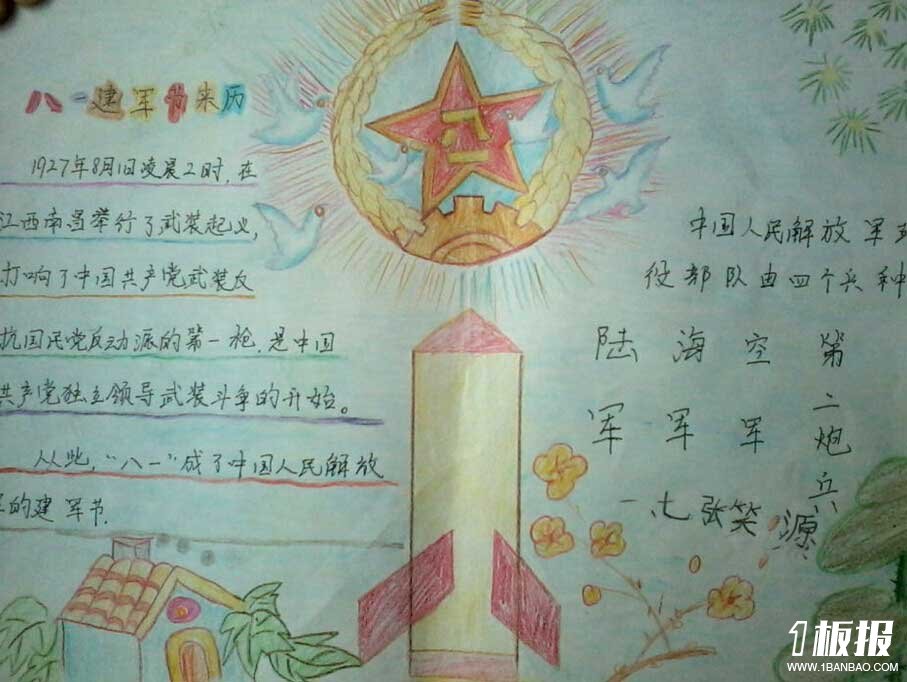 八一建军节来历
1927年8月1日凌晨2时,在
江西南昌举行了武装起义,
打响了中国共产党武装反
抗国民党反动派的第一枪,是中国
共产党独立领导武装斗争的开始。
从此,“八一”成了中国人民解放
的建军节.
八一
中国人民解放军
役部队由四个兵种
陆军
海军
空军
第二炮兵
一.七 张笑源
1板报
WWW.1BANBAO.COM